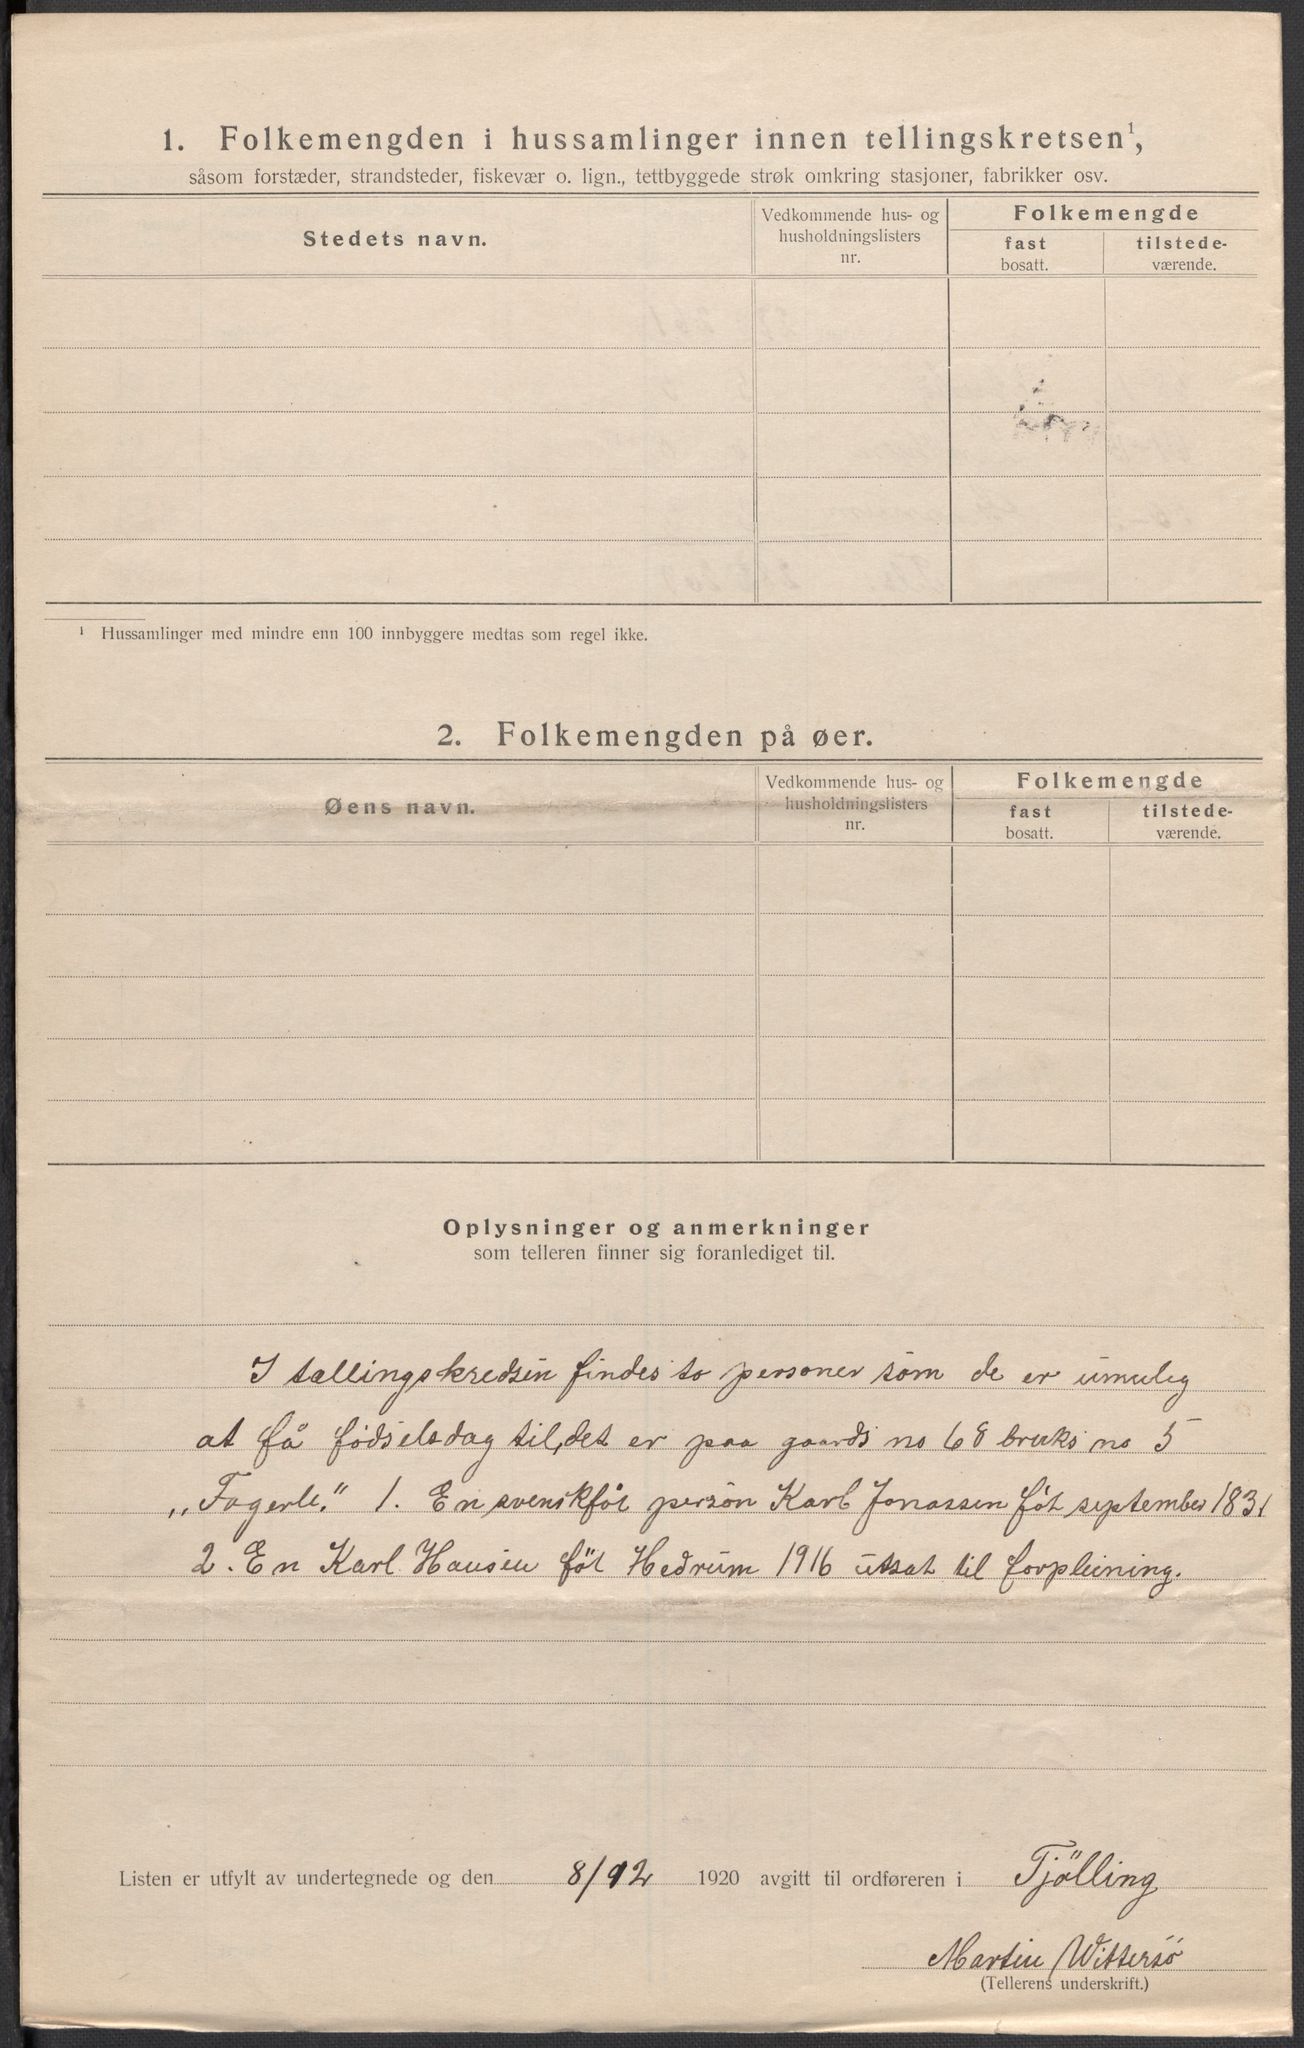 1. Folkemengden i hussamlinger innen tellingskretsen¹,
såsom forstæder, strandsteder, fiskevær o. lign., tettbyggede strøk omkring stasjoner, fabrikker osv.
Stedets navn.
Vedkommende hus- og
husholdningslisters
nr.
Folkemengde
fast
bosatt.
tilstede-
værende.
¹ Hussamlinger med mindre enn 100 innbyggere medtas som regel ikke.
2. Folkemengden på øer.
Øens navn.
Vedkommende hus- og
husholdningslisters
nr.
Folkemengde
fast
bosatt.
tilstede-
værende.
Oplysninger og anmerkninger
som telleren finner sig foranlediget til.
I tællingskredsen findes to personer som de er umulig
at få fødselsdag til, det er paa gaards no 68 bruks no 5
„Fagerle." 1. En svenskføt person Karl Jonassen føt september 1831
2. En Karl Hansen føt Hedrum 1916 utsat til forpleining.
Listen er utfylt av undertegnede og den 8/12 1920 avgitt til ordføreren i Tjølling
Martin Wittersø
(Tellerens underskrift.)